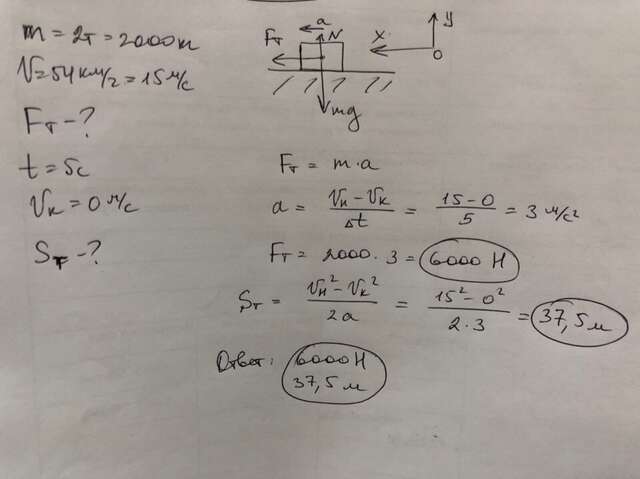 m = 2т = 2000кг
V = 54 км/г = 15 м/с
Fт - ?
t = 5с
Vк = 0 м/с
Sт - ?
a
Fт N X y
0
mg
Fт = m·a
a = (Vн - Vк)/Δt = (15 - 0)/5 = 3 м/с²
Fт = 2000 · 3 = 6000 Н
Sт = (Vн² - Vк²)/2a = (15² - 0²)/(2·3) = 37,5 м
Ответ: 6000 Н
37,5 м